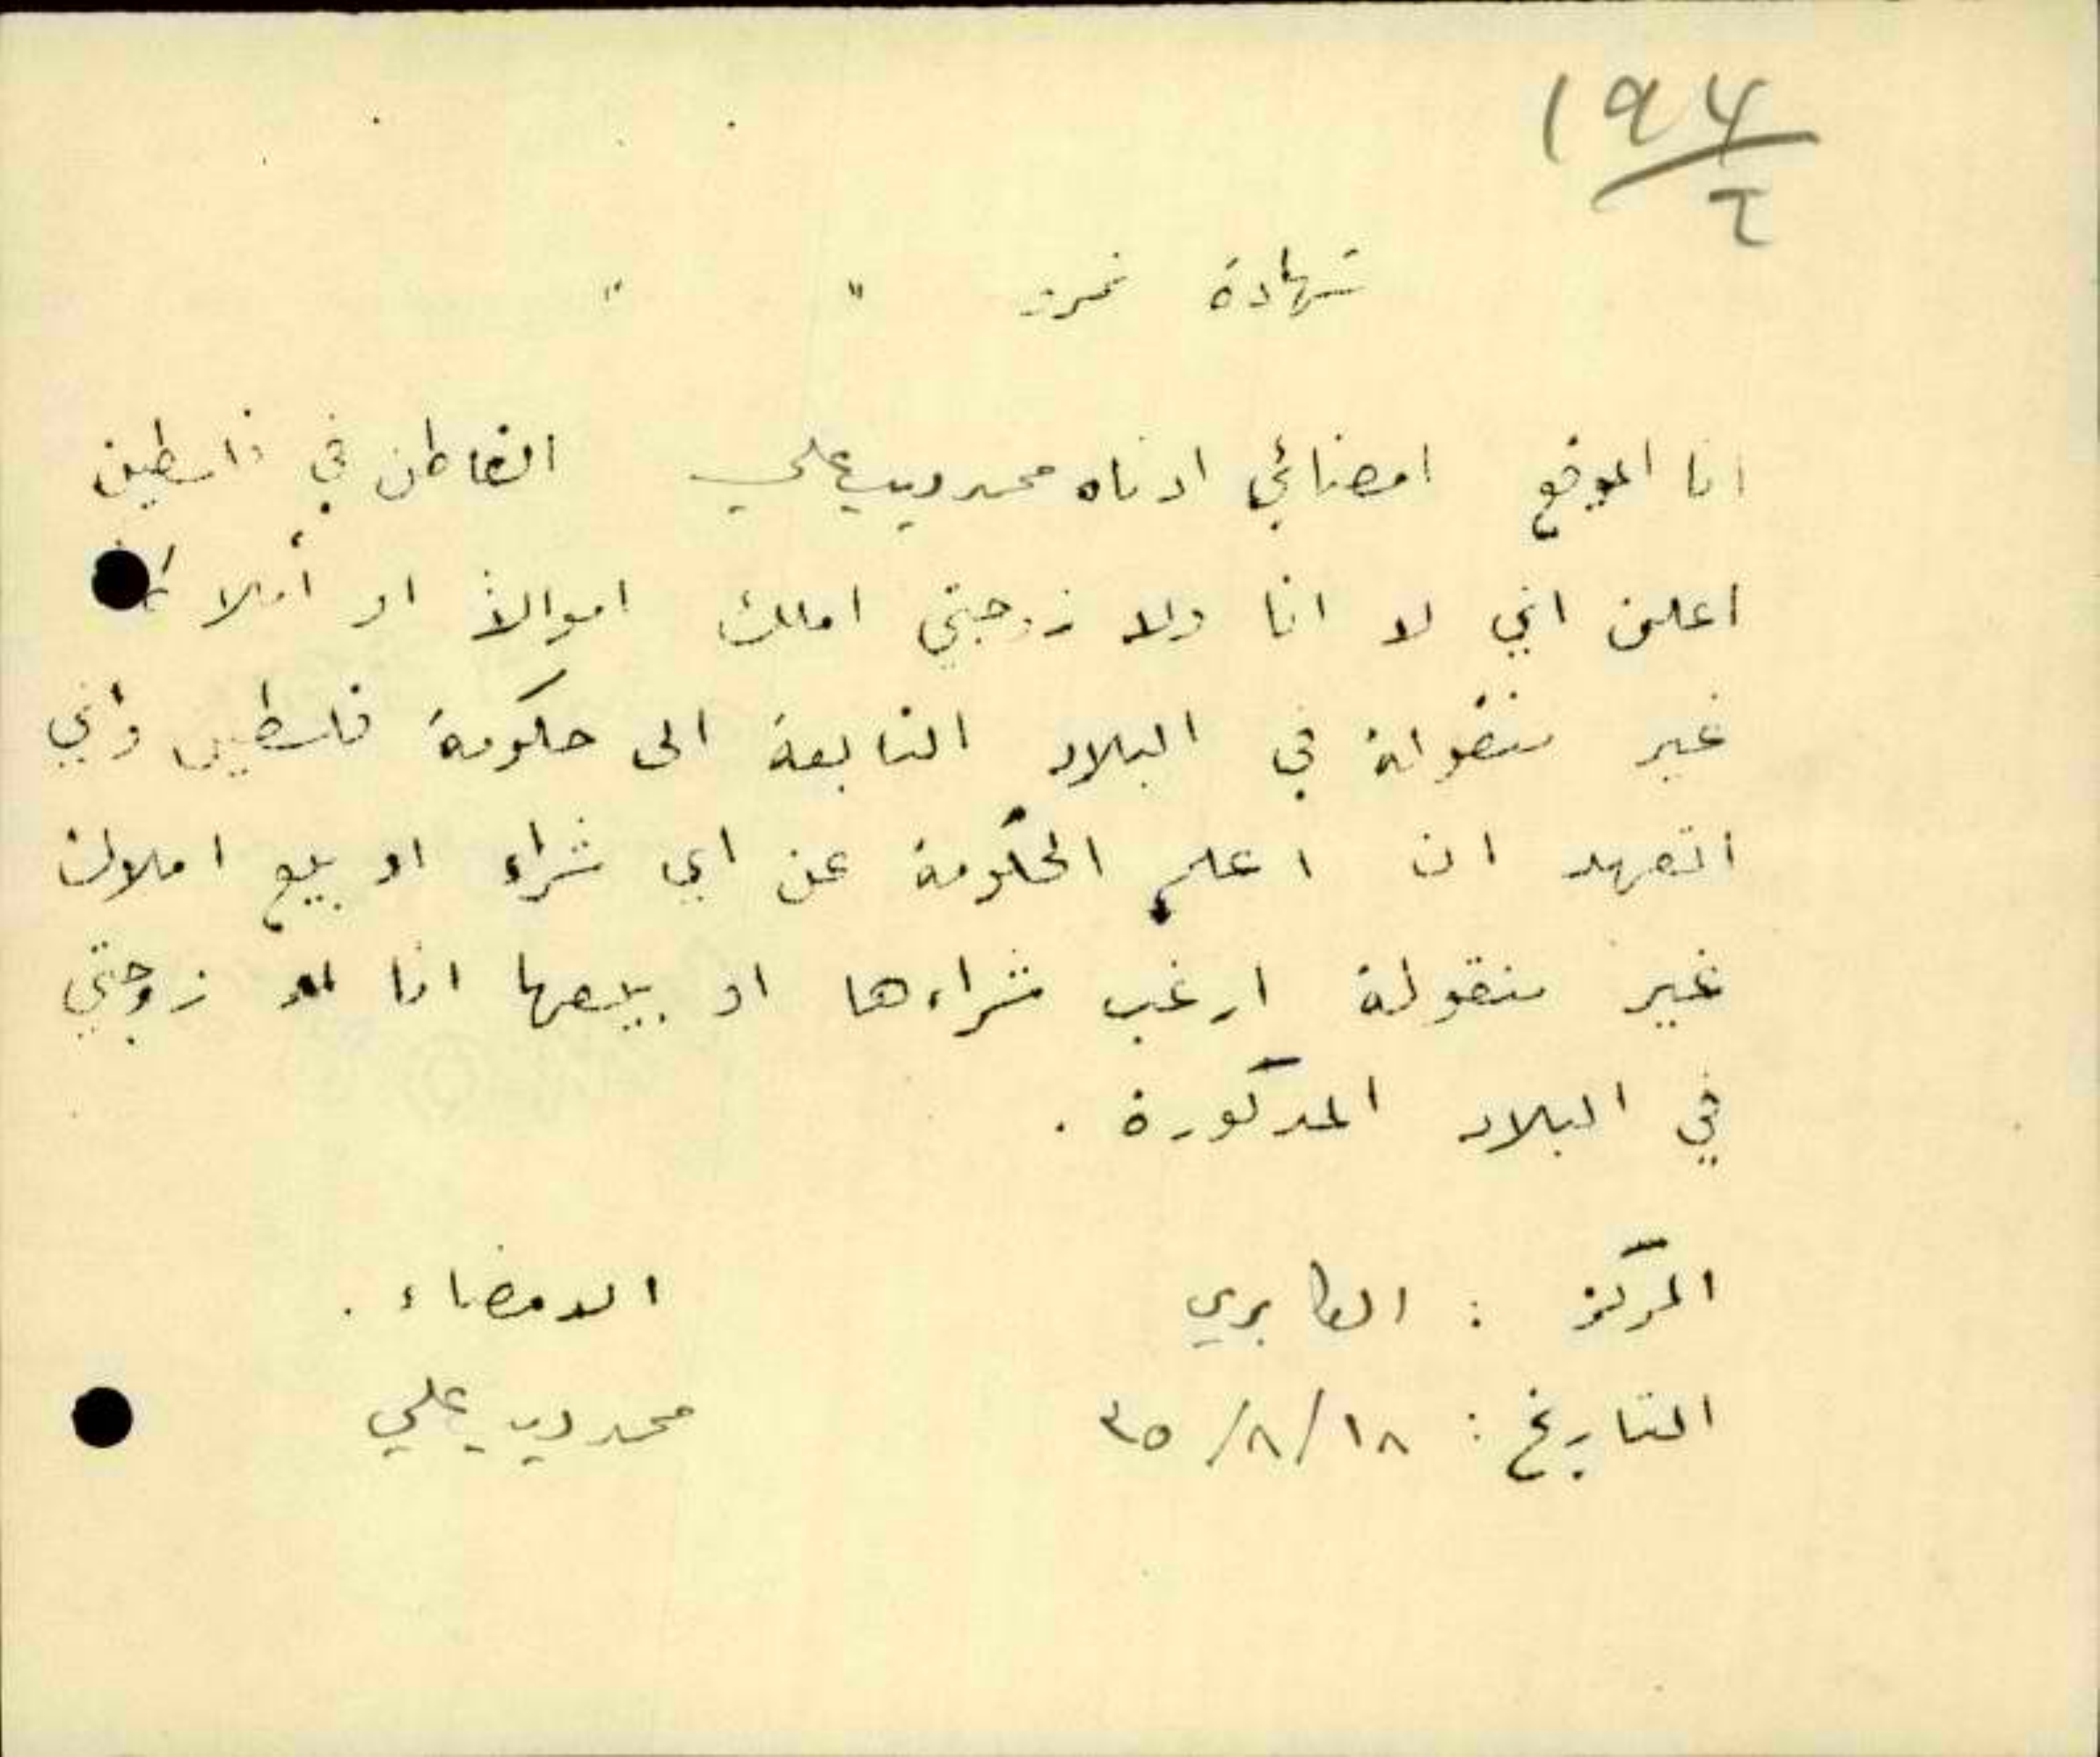 194
2
شهادة نمرة " "
انا الموقع امضائي ادناه محمد ديب علي القاطن في فلسطين
اعلن اني لا انا ولا زوجتي املك اموالاً او أملاكاً
غير منقولة في البلاد التابعة الى حكومة فلسطين واني
اتعهد ان اعلم الحكومة عن اي شراء او بيع املاك
غير منقولة ارغب شراءها او بيعها انا او زوجتي
في البلاد المذكورة .
المركز : الكابري الامضاء .
التاريخ : ١٨/٨/٣٥ محمد ديب علي